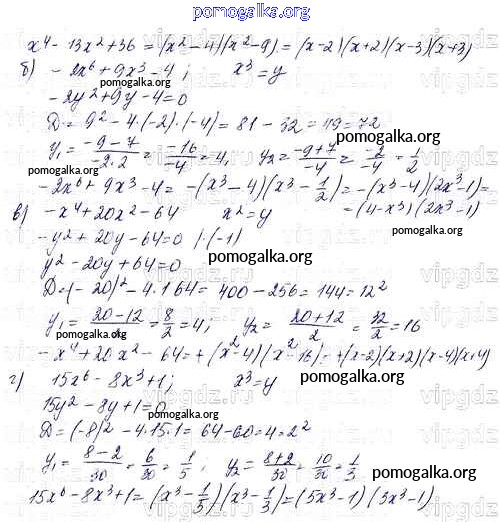 pomogalka.org
x⁴ - 13x² + 36 = (x² - 4)(x² - 9) = (x-2)(x+2)(x-3)(x+3)
б) - 2x⁶ + 9x³ - 4; x³ = y
pomogalka.org
- 2y² + 9y - 4 = 0
D = 9² - 4·(-2)·(-4) = 81 - 32 = 49 = 7²
pomogalka.org
y₁ = (-9-7)/(-2·2) = (-16)/(-4) = 4, y₂ = (-9+7)/(-4) = (-2)/(-4) = 1/2
pomogalka.org
- 2x⁶ + 9x³ - 4 = -(x³ - 4)(x³ - 1/2) = -(x³ - 4)(2x³ - 1) =
= (4 - x³)(2x³ - 1)
в) - x⁴ + 20x² - 64 x² = y
pomogalka.org
- y² + 20y - 64 = 0 |·(-1)
y² - 20y + 64 = 0
pomogalka.org
D = (-20)² - 4·1·64 = 400 - 256 = 144 = 12²
y₁ = (20-12)/2 = 8/2 = 4; y₂ = (20+12)/2 = 32/2 = 16
pomogalka.org
- x⁴ + 20x² - 64 = +(x² - 4)(x² - 16) = +(x-2)(x+2)(x-4)(x+4)
г) 15x⁶ - 8x³ + 1; x³ = y
pomogalka.org
15y² - 8y + 1 = 0
pomogalka.org
D = (-8)² - 4·15·1 = 64 - 60 = 4 = 2²
y₁ = (8-2)/30 = 6/30 = 1/5; y₂ = (8+2)/30 = 10/30 = 1/3
pomogalka.org
15x⁶ - 8x³ + 1 = (x³ - 1/5)(x³ - 1/3) = (5x³ - 1)(3x³ - 1)
pomogalka.org